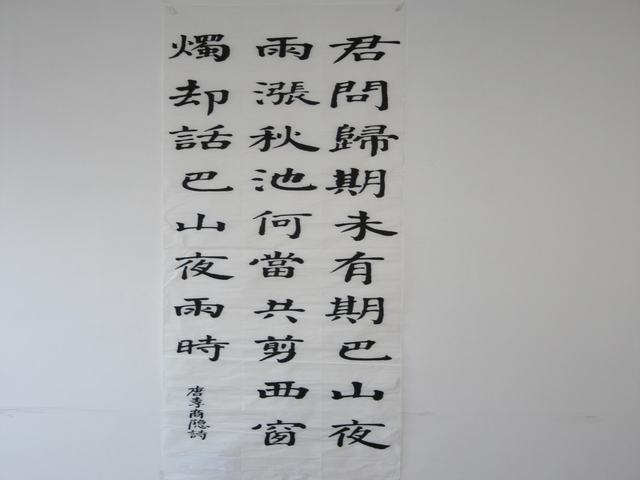 君問歸期未有期巴山夜
雨漲秋池何當共剪西窗
燭却話巴山夜雨時
唐李商隐詩